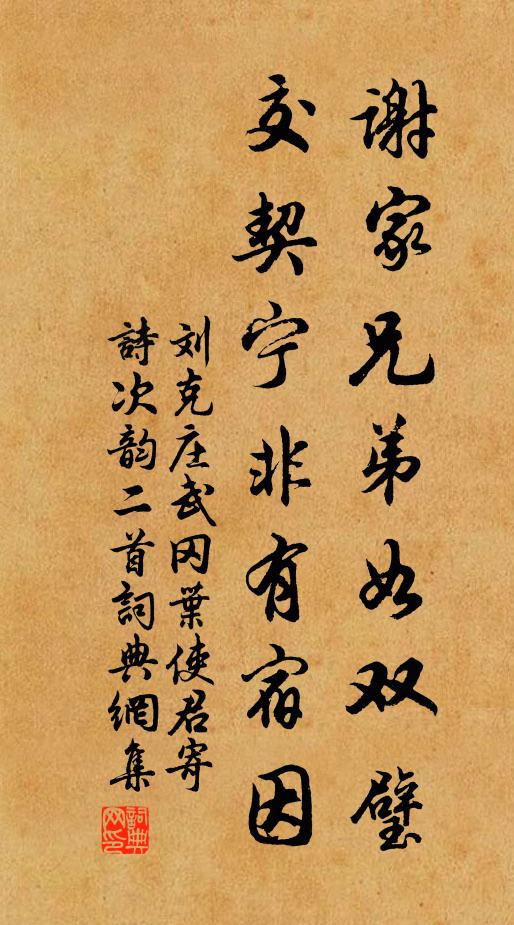 谢家兄弟如双璧
交契宁非有宿因
刘克庄武冈葉使君寄
詩次韵二首詞典網集
詞典网印